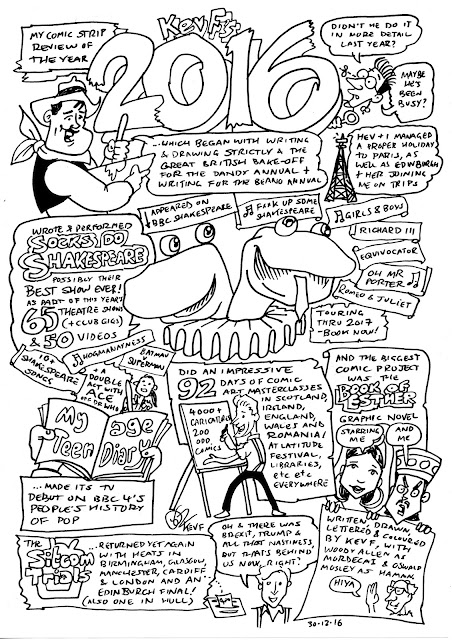 MY COMIC STRIP
REVIEW OF
THE YEAR
Kev F's
2016
DIDN'T HE DO IT
IN MORE DETAIL
LAST YEAR?
MAYBE
HE'S
BEEN
BUSY?
...WHICH BEGAN WITH WRITING
& DRAWING STRICTLY & THE
GREAT BRITISH BAKE-OFF
FOR THE DANDY ANNUAL +
WRITING FOR THE BEANO ANNUAL
HEV + I MANAGED
A PROPER HOLIDAY
TO PARIS, AS
WELL AS EDINBURGH
+ HER JOINING
ME ON TRIPS
WROTE & PERFORMED
SOCKS DO
SHAKESPEARE
POSSIBLY THEIR
BEST SHOW EVER!
AS PART OF THIS YEAR'S
65 THEATRE SHOWS
(+CLUB GIGS)
& 50 VIDEOS
APPEARED ON
BBC SHAKESPEARE
F**K UP SOME
SHAKESPEARE
GIRLS & BOYS
RICHARD III
EQUIVOCATOR
OH MR
PORTER
ROMEO & JULIET
TOURING
THRU 2017
BOOK NOW!
10+
SHAKESPEARE
SONGS
HOGMANAYNESS
BATMAN
V
SUPERMAN
+ A
DOUBLE
ACT WITH
ACE
OFF DR WHO
My Teenage
Diary
...MADE ITS TV
DEBUT ON BBC 4'S
PEOPLE'S HISTORY
OF POP
DID AN IMPRESSIVE
92 DAYS OF COMIC
ART MASTERCLASSES
IN SCOTLAND,
IRELAND,
ENGLAND,
WALES AND
ROMANIA!
AT LATITUDE
FESTIVAL,
LIBRARIES,
etc etc
EVERYWHERE
4000+
CARICATURES
200
COMICS
KEVF
AND THE BIGGEST
COMIC PROJECT
WAS THE
BOOK OF
ESTHER
GRAPHIC NOVEL
STARRING
ME
AND
ME
WRITTEN, DRAWN
LETTERED & COLOURED
BY KEV F, WITH
WOODY ALLEN AS
MORDECAI & OSWALD
MOSLEY AS HAMAN
HIYA
THE
Sitcom
Trials
...RETURNED YET AGAIN
WITH HEATS IN
BIRMINGHAM, GLASGOW,
MANCHESTER, CARDIFF
& LONDON AND AN
EDINBURGH FINAL!
(ALSO ONE IN HULL)
OH & THERE WAS
BREXIT, TRUMP &
ALL THAT NASTINESS,
BUT THAT'S BEHIND
US NOW, RIGHT?
30-12-16